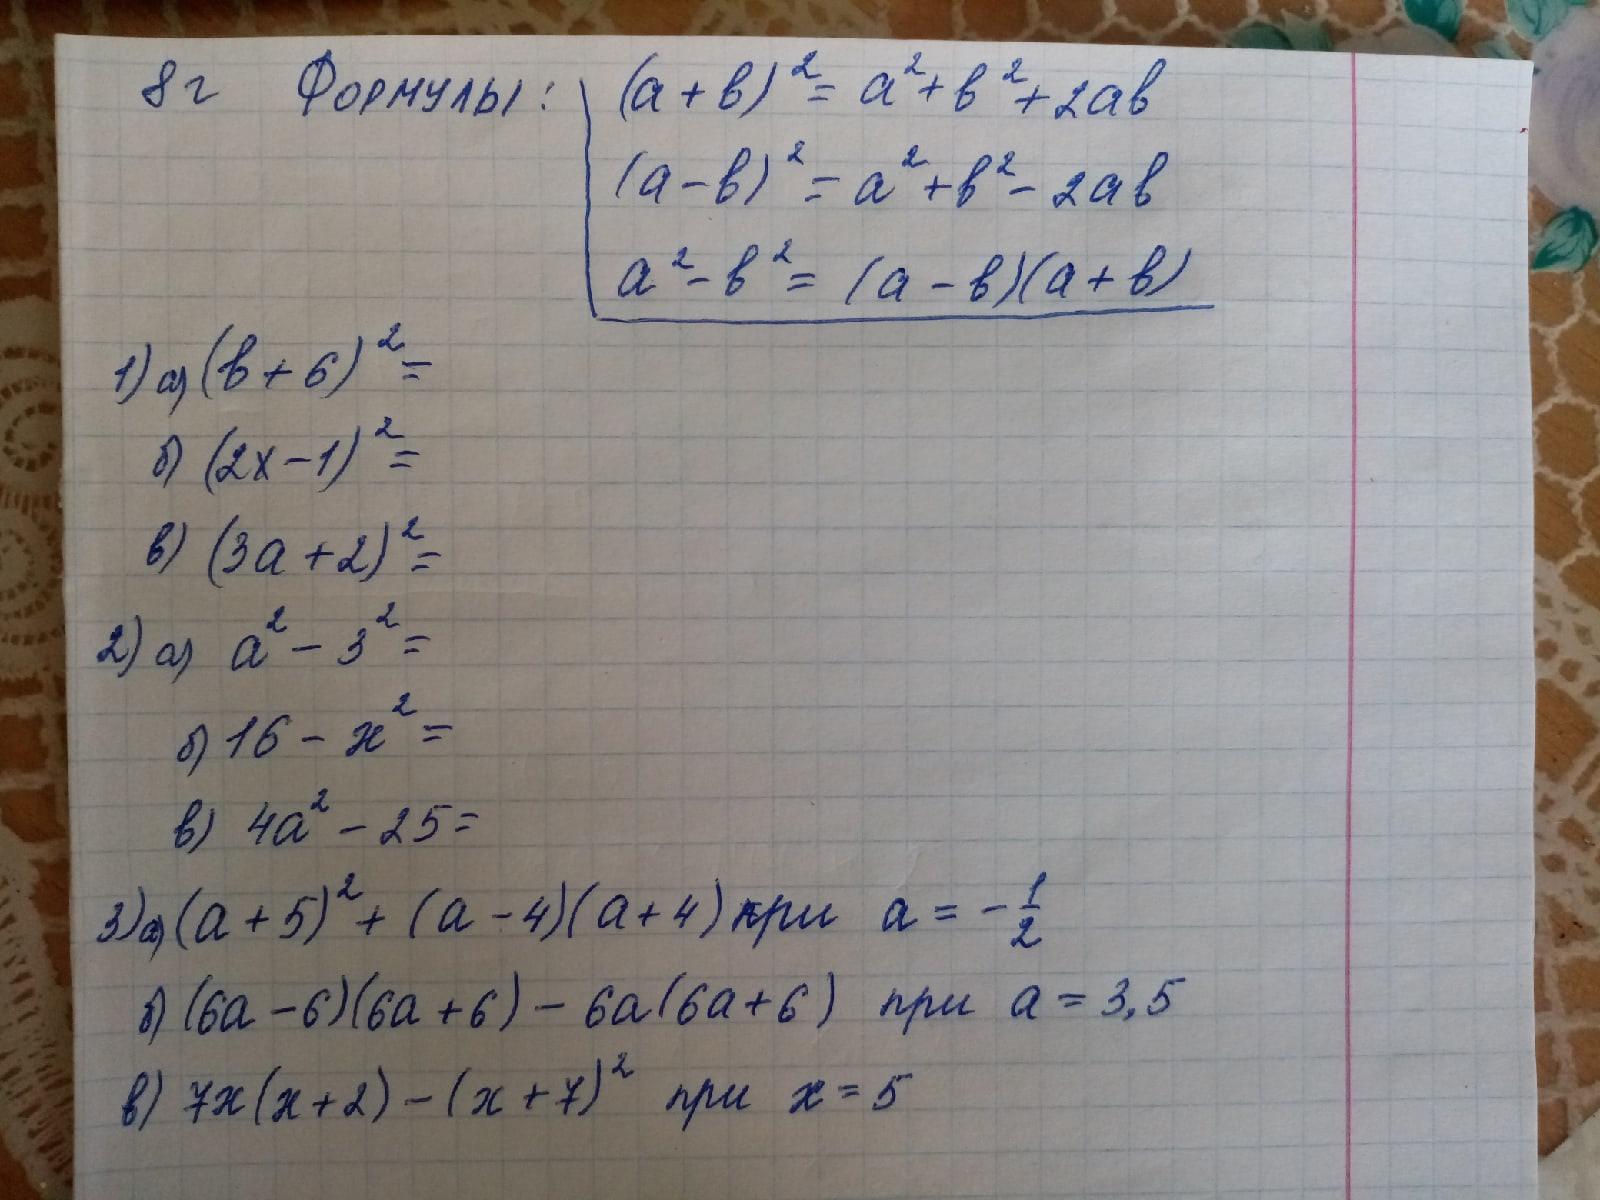 8г Формулы: (a + b)² = a² + b² + 2ab
(a - b)² = a² + b² - 2ab
a² - b² = (a - b)(a + b)
1) а) (b + 6)² =
б) (2x - 1)² =
в) (3a + 2)² =
2) а) a² - 3² =
б) 16 - x² =
в) 4a² - 25 =
3) а) (a + 5)² + (a - 4)(a + 4) при a = - 1/2
б) (6a - 6)(6a + 6) - 6a(6a + 6) при a = 3,5
в) 7x(x + 2) - (x + 7)² при x = 5